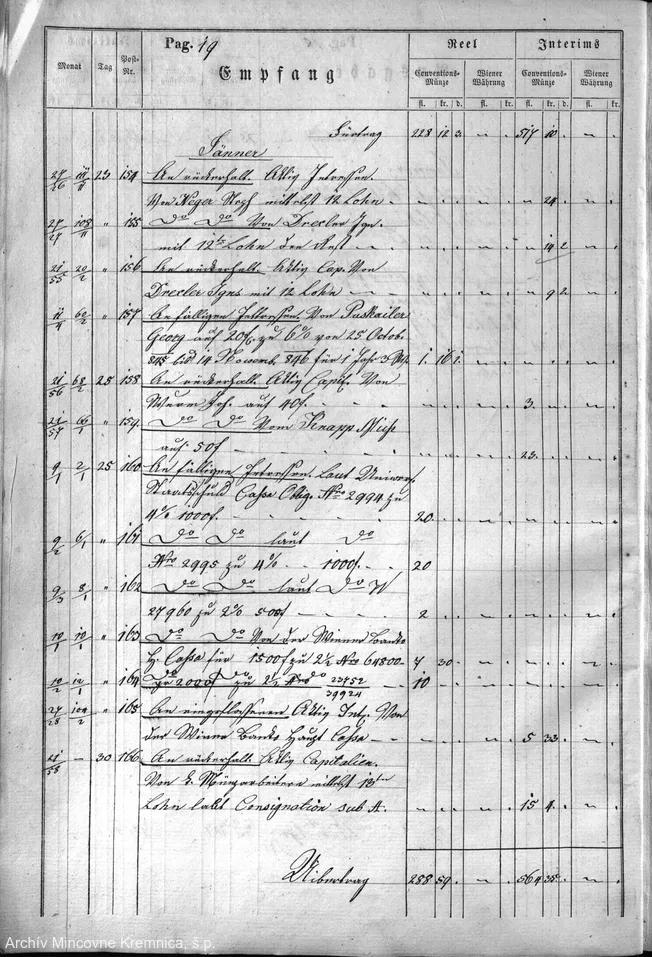 Pag. 19
Empfang
Reel Interims
Monat Tag Post-Nr. Conventions-Münze Wiener Währung Conventions-Münze Wiener Währung
fl. kr. d. fl. kr. fl. kr. fl. kr.
Fürtrag 228 12 3. 517 10
Jänner
27/26 23 154 An rückerhalt. Aktiv Intressen.
Von Heger mittelst 12 Lohn 24
27/27 108/11 " 155 Do Do Von Drexler Ign.
mit 12ts Lohn den Rest 14 2
21/55 20/2 " 156 An rückerhalt. Aktiv Cap. Von
Drexler Igns mit 12 Lohn 9 2
11/4 62/2 " 157 An fälligen Intressen. Von Puskailer
Georg auf 20f. zu 6% von 25 Octob.
845 bis 14 Novemb. 846 für 1 Jahr 1. 16 1.
21/56 68/2 25 158 An rückerhalt. Aktiv Capit. Von
Wurm Joh. auf 40f. 3.
21/57 66/1 " 159 Do Do Vom Knapp Mich
auf 50f 23.
9/1 2/1 25 160 An fälligen Intressen. Laut
Staatsschuld Cassa Oblig. Nro 2994 zu
4% 1000f. 20
9/2 6/1 " 161 Do Do laut Do
Nro 2995 zu 4% 1000f. 20
9/3 8/1 " 162 Do Do laut Do N
27960 zu 2% 500f 2
10/1 10/1 " 163 Do Do Von der Wiener Banko
H Cassa für 1500f zu 2½ Nro 64800 7 30
10/2 12/1 " 164 Do 2000f Do zu 2½ Nro Do 23752 10
39924
27/28 104/2 " 165 An eingeflossenen Aktiv Int. Von
der Wiene Banko Haupt Cassa 5 33
21/58 30 166 An rückerhalt. Aktiv Capitalien.
Von k. Münzarbeitern mittelst 13ten
Lohn laut Consignation sub A. 15 4
Uibertrag 288 59 564 35
Archív Mincovne Kremnica, š.p.